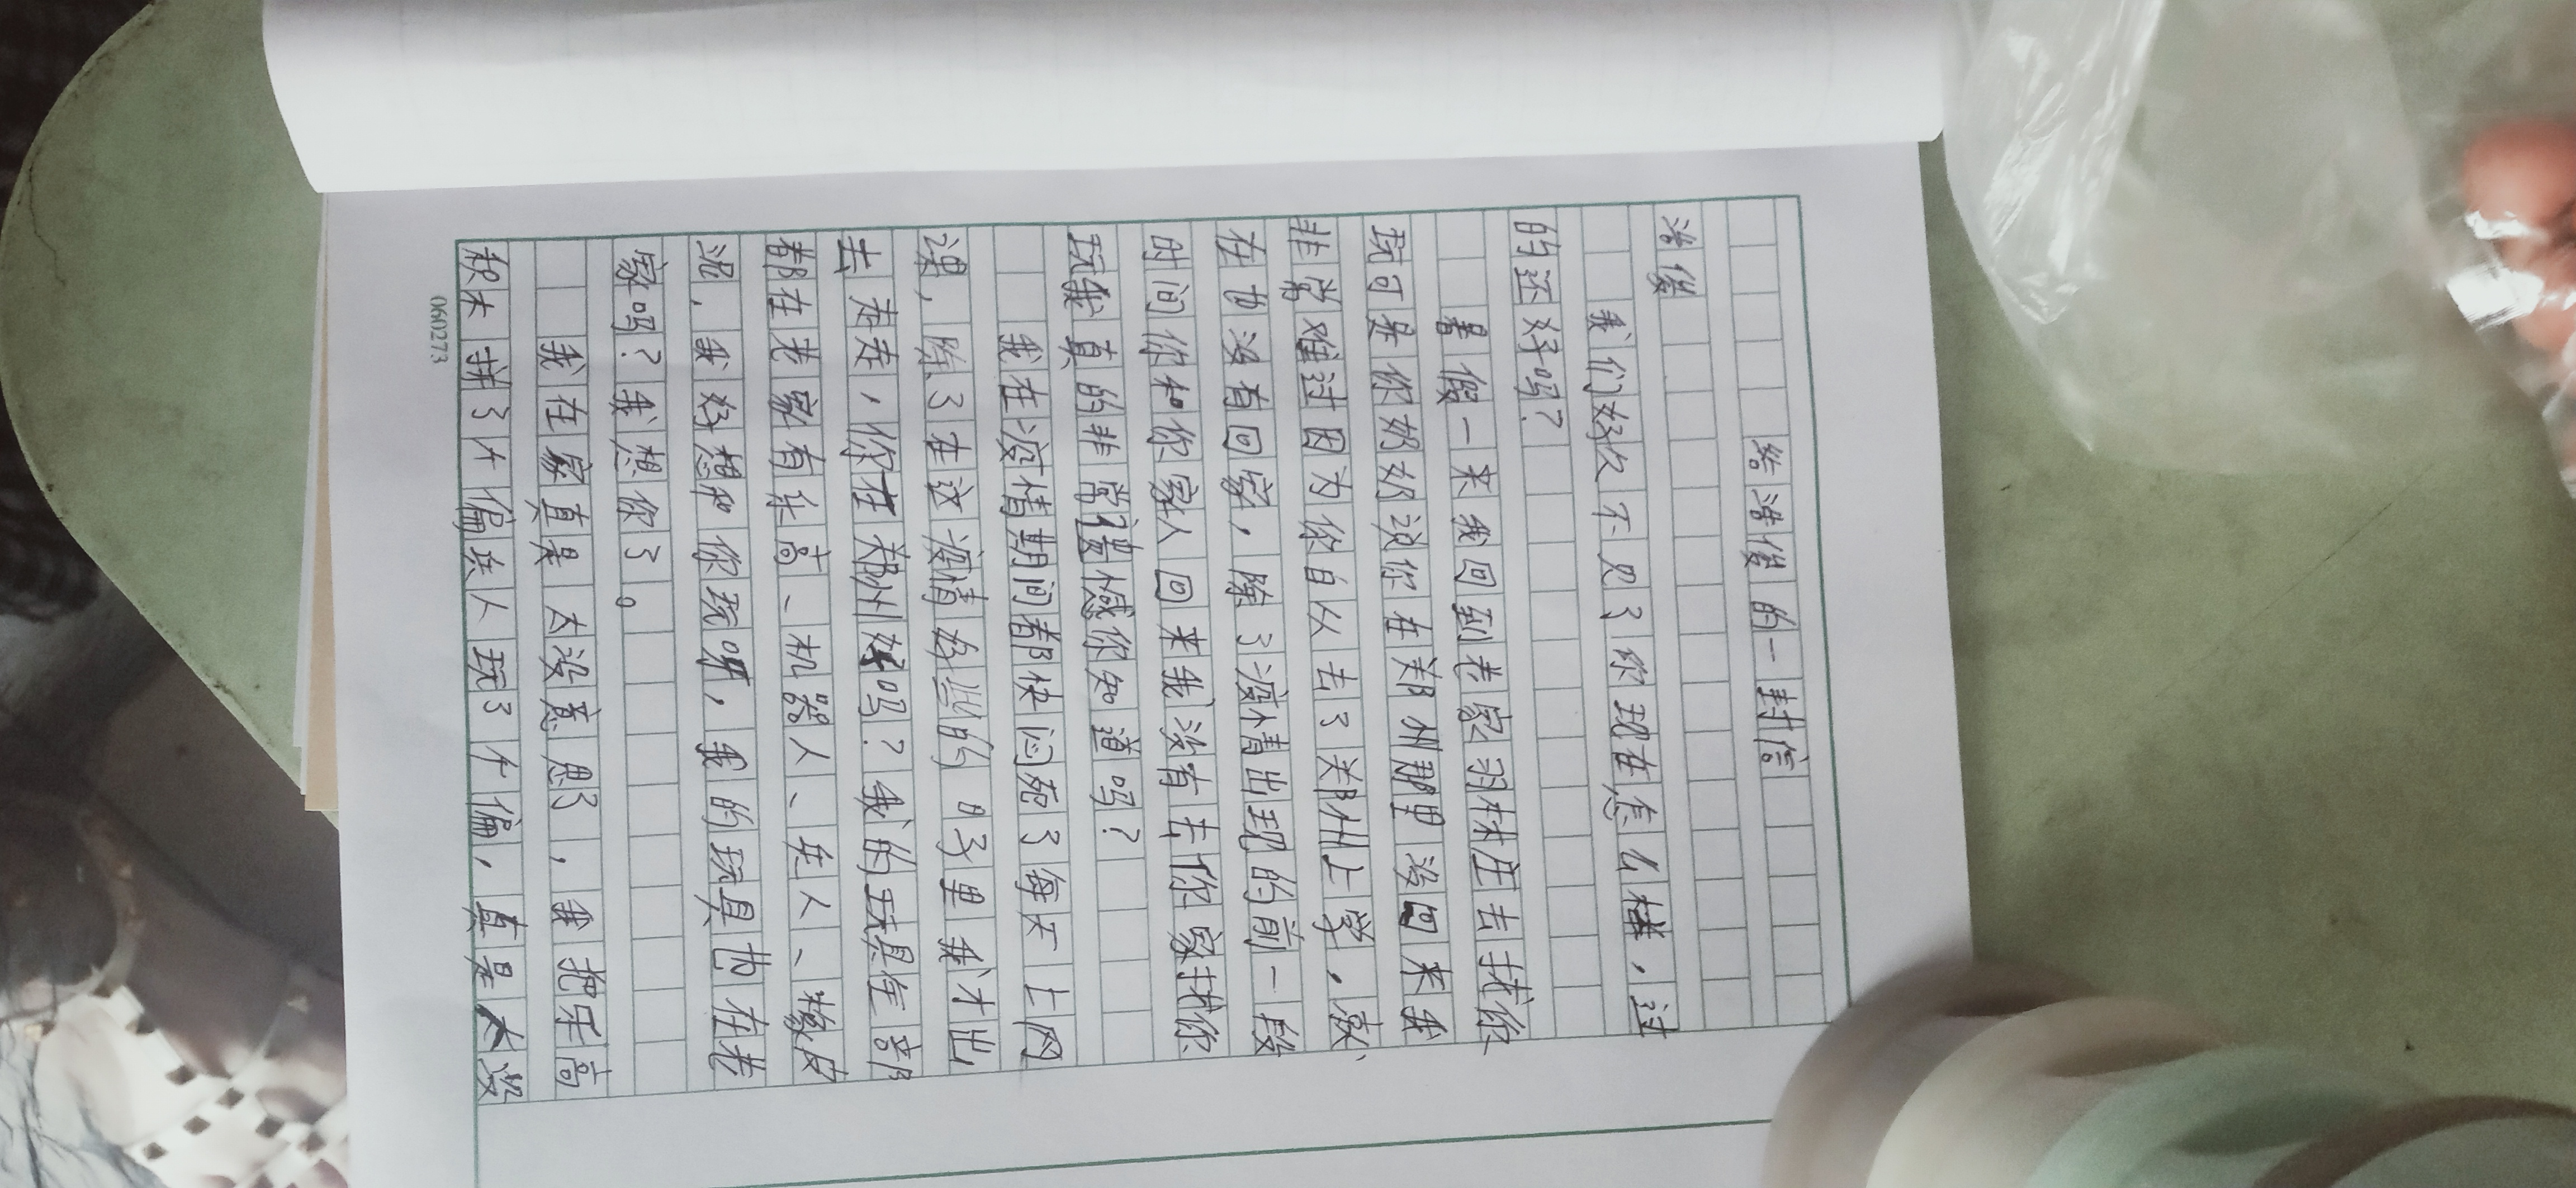 给浩俊的一封信
浩俊
我们好久不见了你现在怎么样，过
的还好吗？
暑假一来我回到老家羽林庄去找你
玩可是你奶奶说你在郑州那里没回来我
非常难过因为你自从去了郑州上学，就
在也没有回家，除了疫情出现的前一段
时间你和你家人回来我没有去你家找你
玩我真的非常遗憾你知道吗？
我在没情期间都快闷死了每天上网
课，除了在这疫情好些的时里我才出
去走走，你在郑州好吗？我的玩具全部
都在老家有乐高、机器人、兵人、橡皮
泥，我好想和你玩呀，我的玩具也在老
家吗？我想你了。
我在家真是太没意思了，我把乐高
积木拼了个偏兵人玩了个偏，真是太没
060273